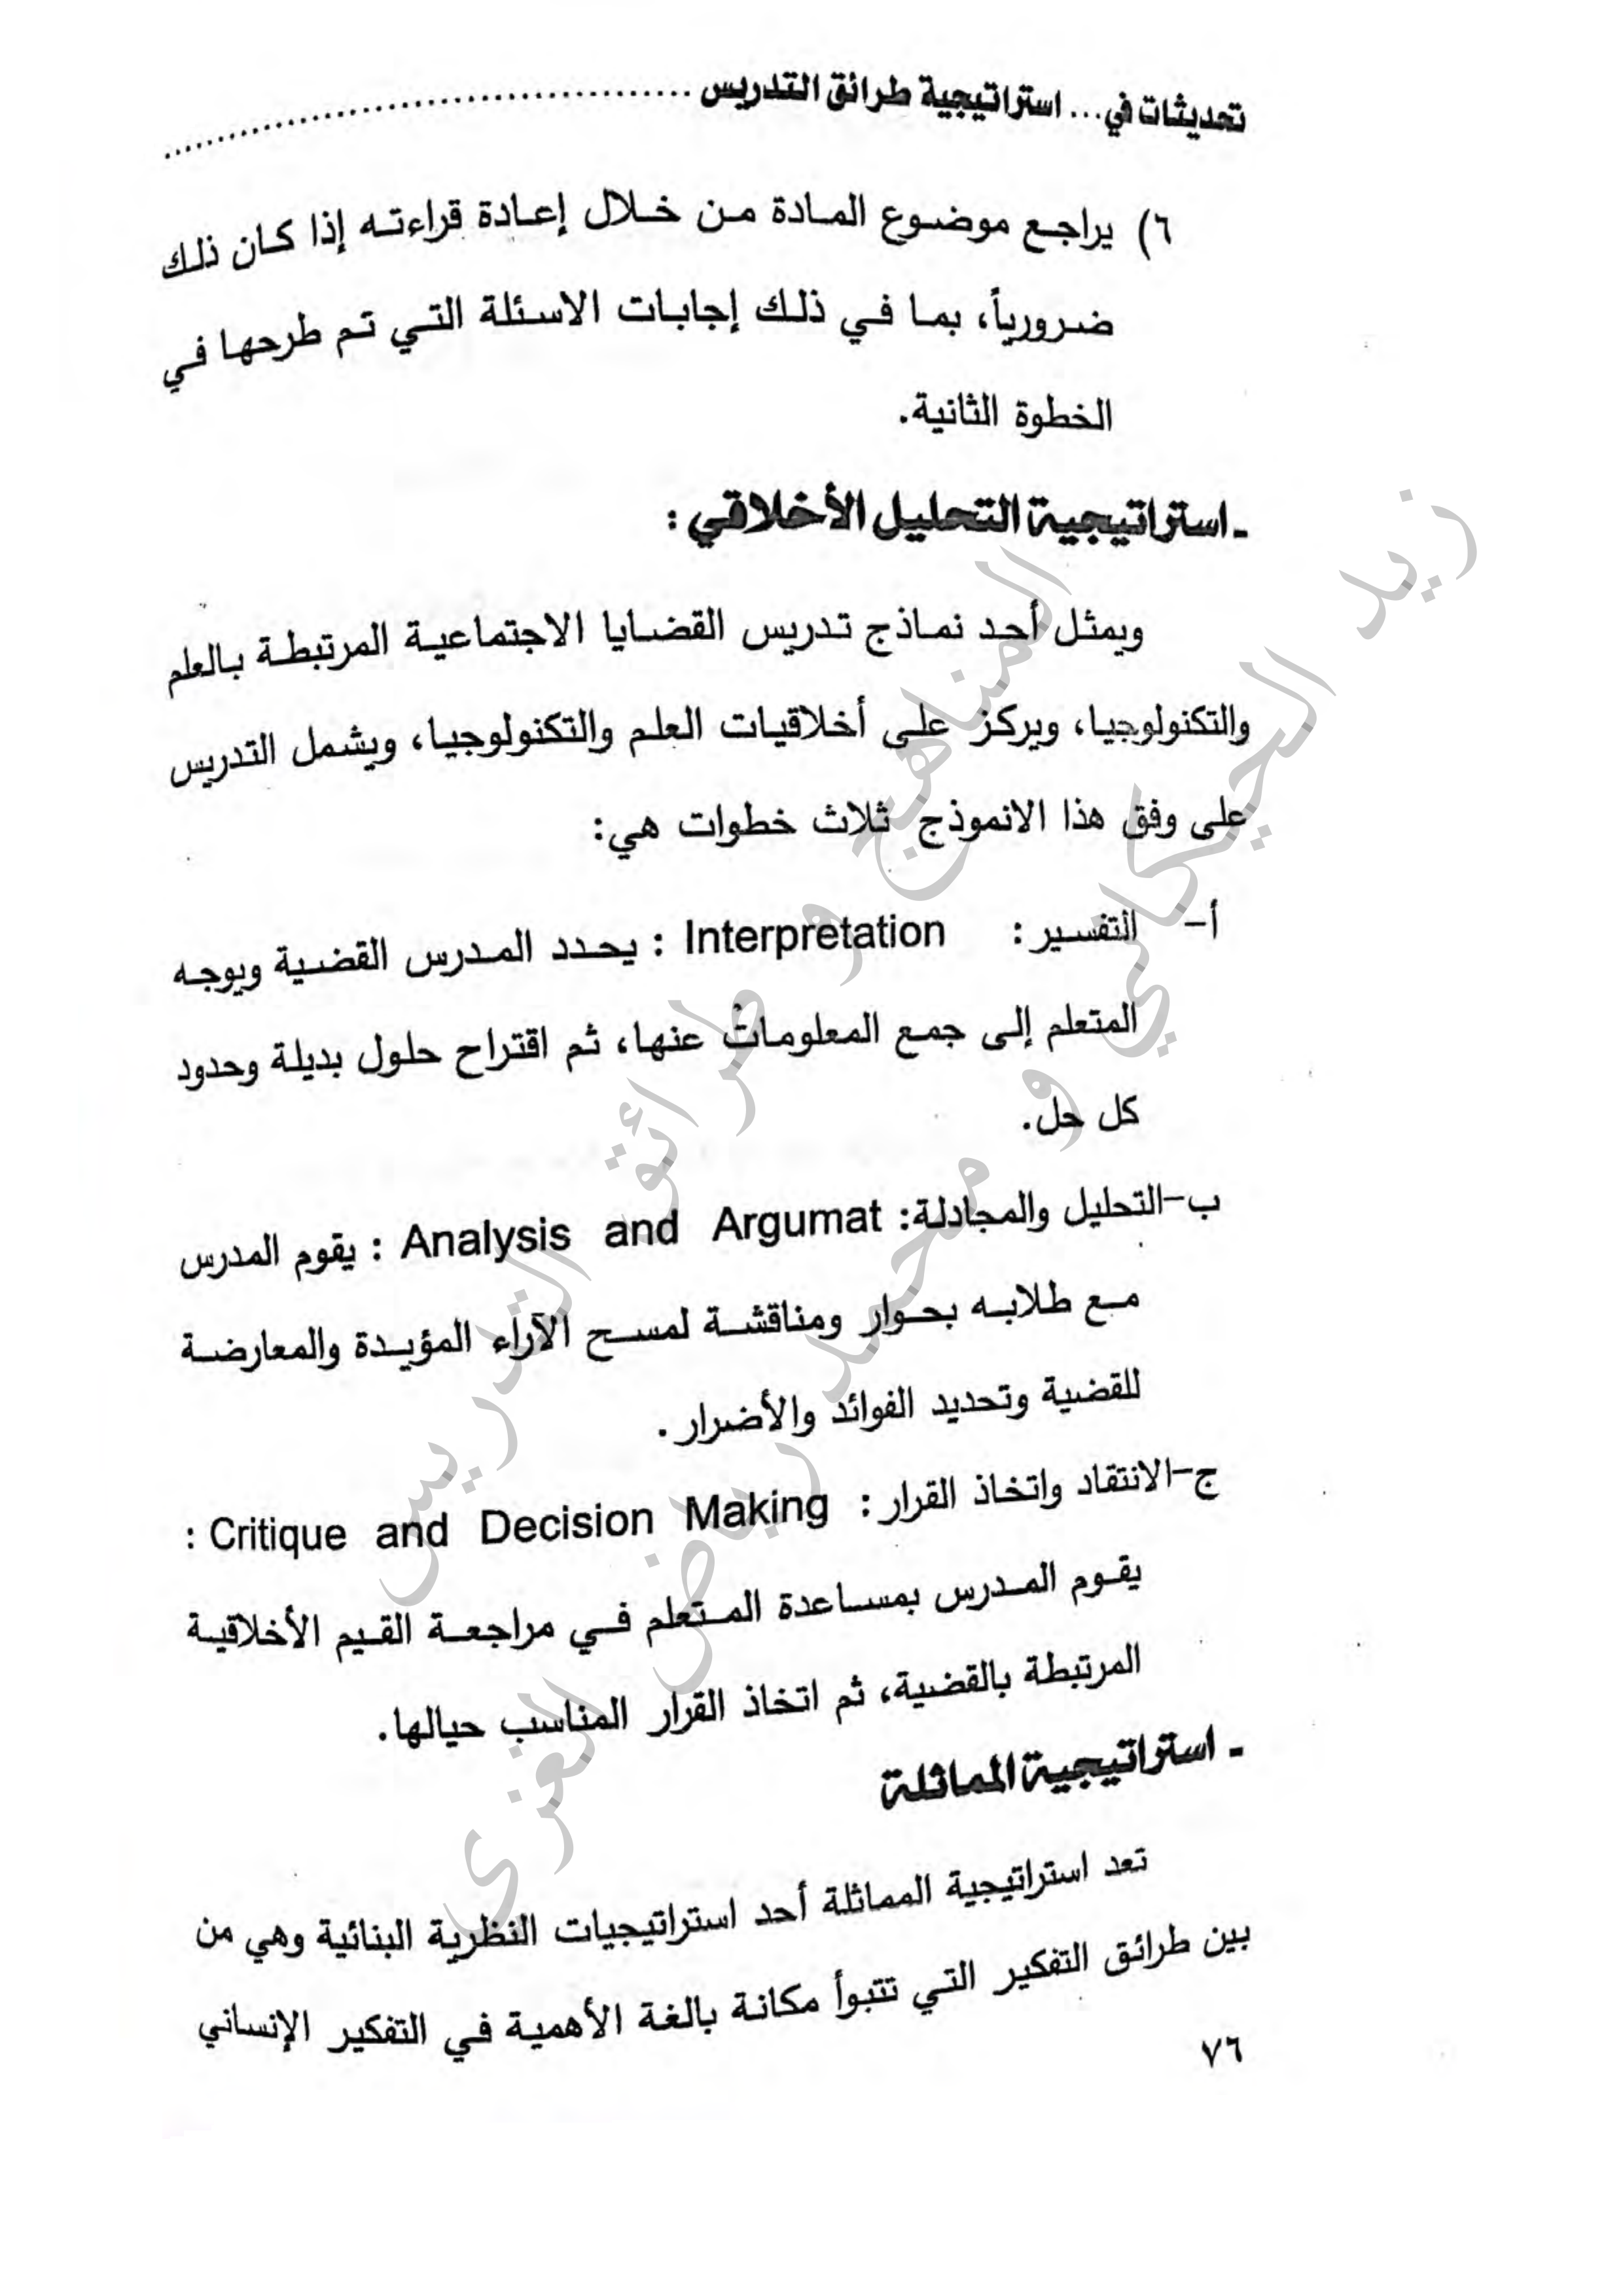 تحديثات في... استراتيجية طرائق التدريس
٦) يراجع موضوع المادة من خلال إعادة قراءته إذا كان ذلك
ضرورياً، بما في ذلك إجابات الاسئلة التي تم طرحها في
الخطوة الثانية.
- استراتيجية التحليل الأخلاقي :
ويمثل أحد نماذج تدريس القضايا الاجتماعية المرتبطة بالعلم
والتكنولوجيا، ويركز على أخلاقيات العلم والتكنولوجيا، ويشمل التدريس
على وفق هذا الانموذج ثلاث خطوات هي:
أ- التفسير : Interpretation : يحدد المدرس القضية ويوجه
المتعلم إلى جمع المعلومات عنها، ثم اقتراح حلول بديلة وحدود
كل حل.
ب-التحليل والمجادلة: Analysis and Argumat : يقوم المدرس
مع طلابه بحوار ومناقشة لمسح الآراء المؤيدة والمعارضة
للقضية وتحديد الفوائد والأضرار .
ج-الانتقاد واتخاذ القرار : Critique and Decision Making :
يقوم المدرس بمساعدة المتعلم في مراجعة القيم الأخلاقية
المرتبطة بالقضية، ثم اتخاذ القرار المناسب حيالها.
- استراتيجية المماثلة
تعد استراتيجية المماثلة أحد استراتيجيات النظرية البنائية وهي من
بين طرائق التفكير التي تتبوأ مكانة بالغة الأهمية في التفكير الإنساني
٧٦
المناهج و طرائق التدريس
زيد الحيكاني و محمد رياض الغزي